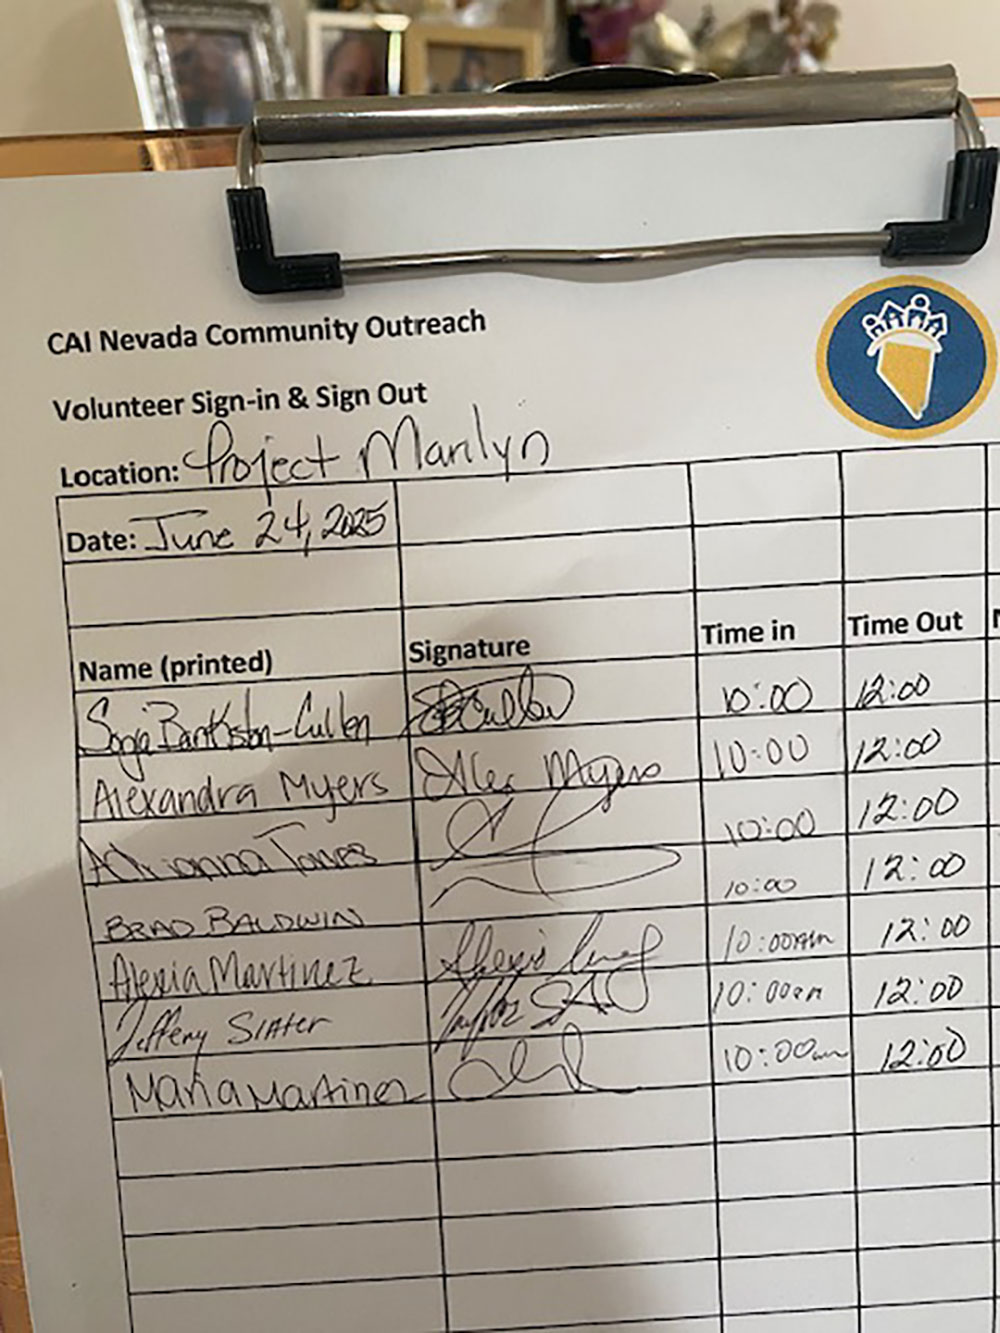 CAI Nevada Community Outreach
Volunteer Sign-in & Sign Out
Location: Project Marilyn
Date: June 24, 2025
Name (printed) Signature Time in Time Out
Sonja Bankston-Cullen 10:00 12:00
Alexandra Myers Alex Myers 10:00 12:00
Adrianna Torres 10:00 12:00
BRAD BALDWIN 10:00 12:00
Alexia Martinez 10:00AM 12:00
Jeffery Slater 10:00am 12:00
Maria Martinez 10:00am 12:00